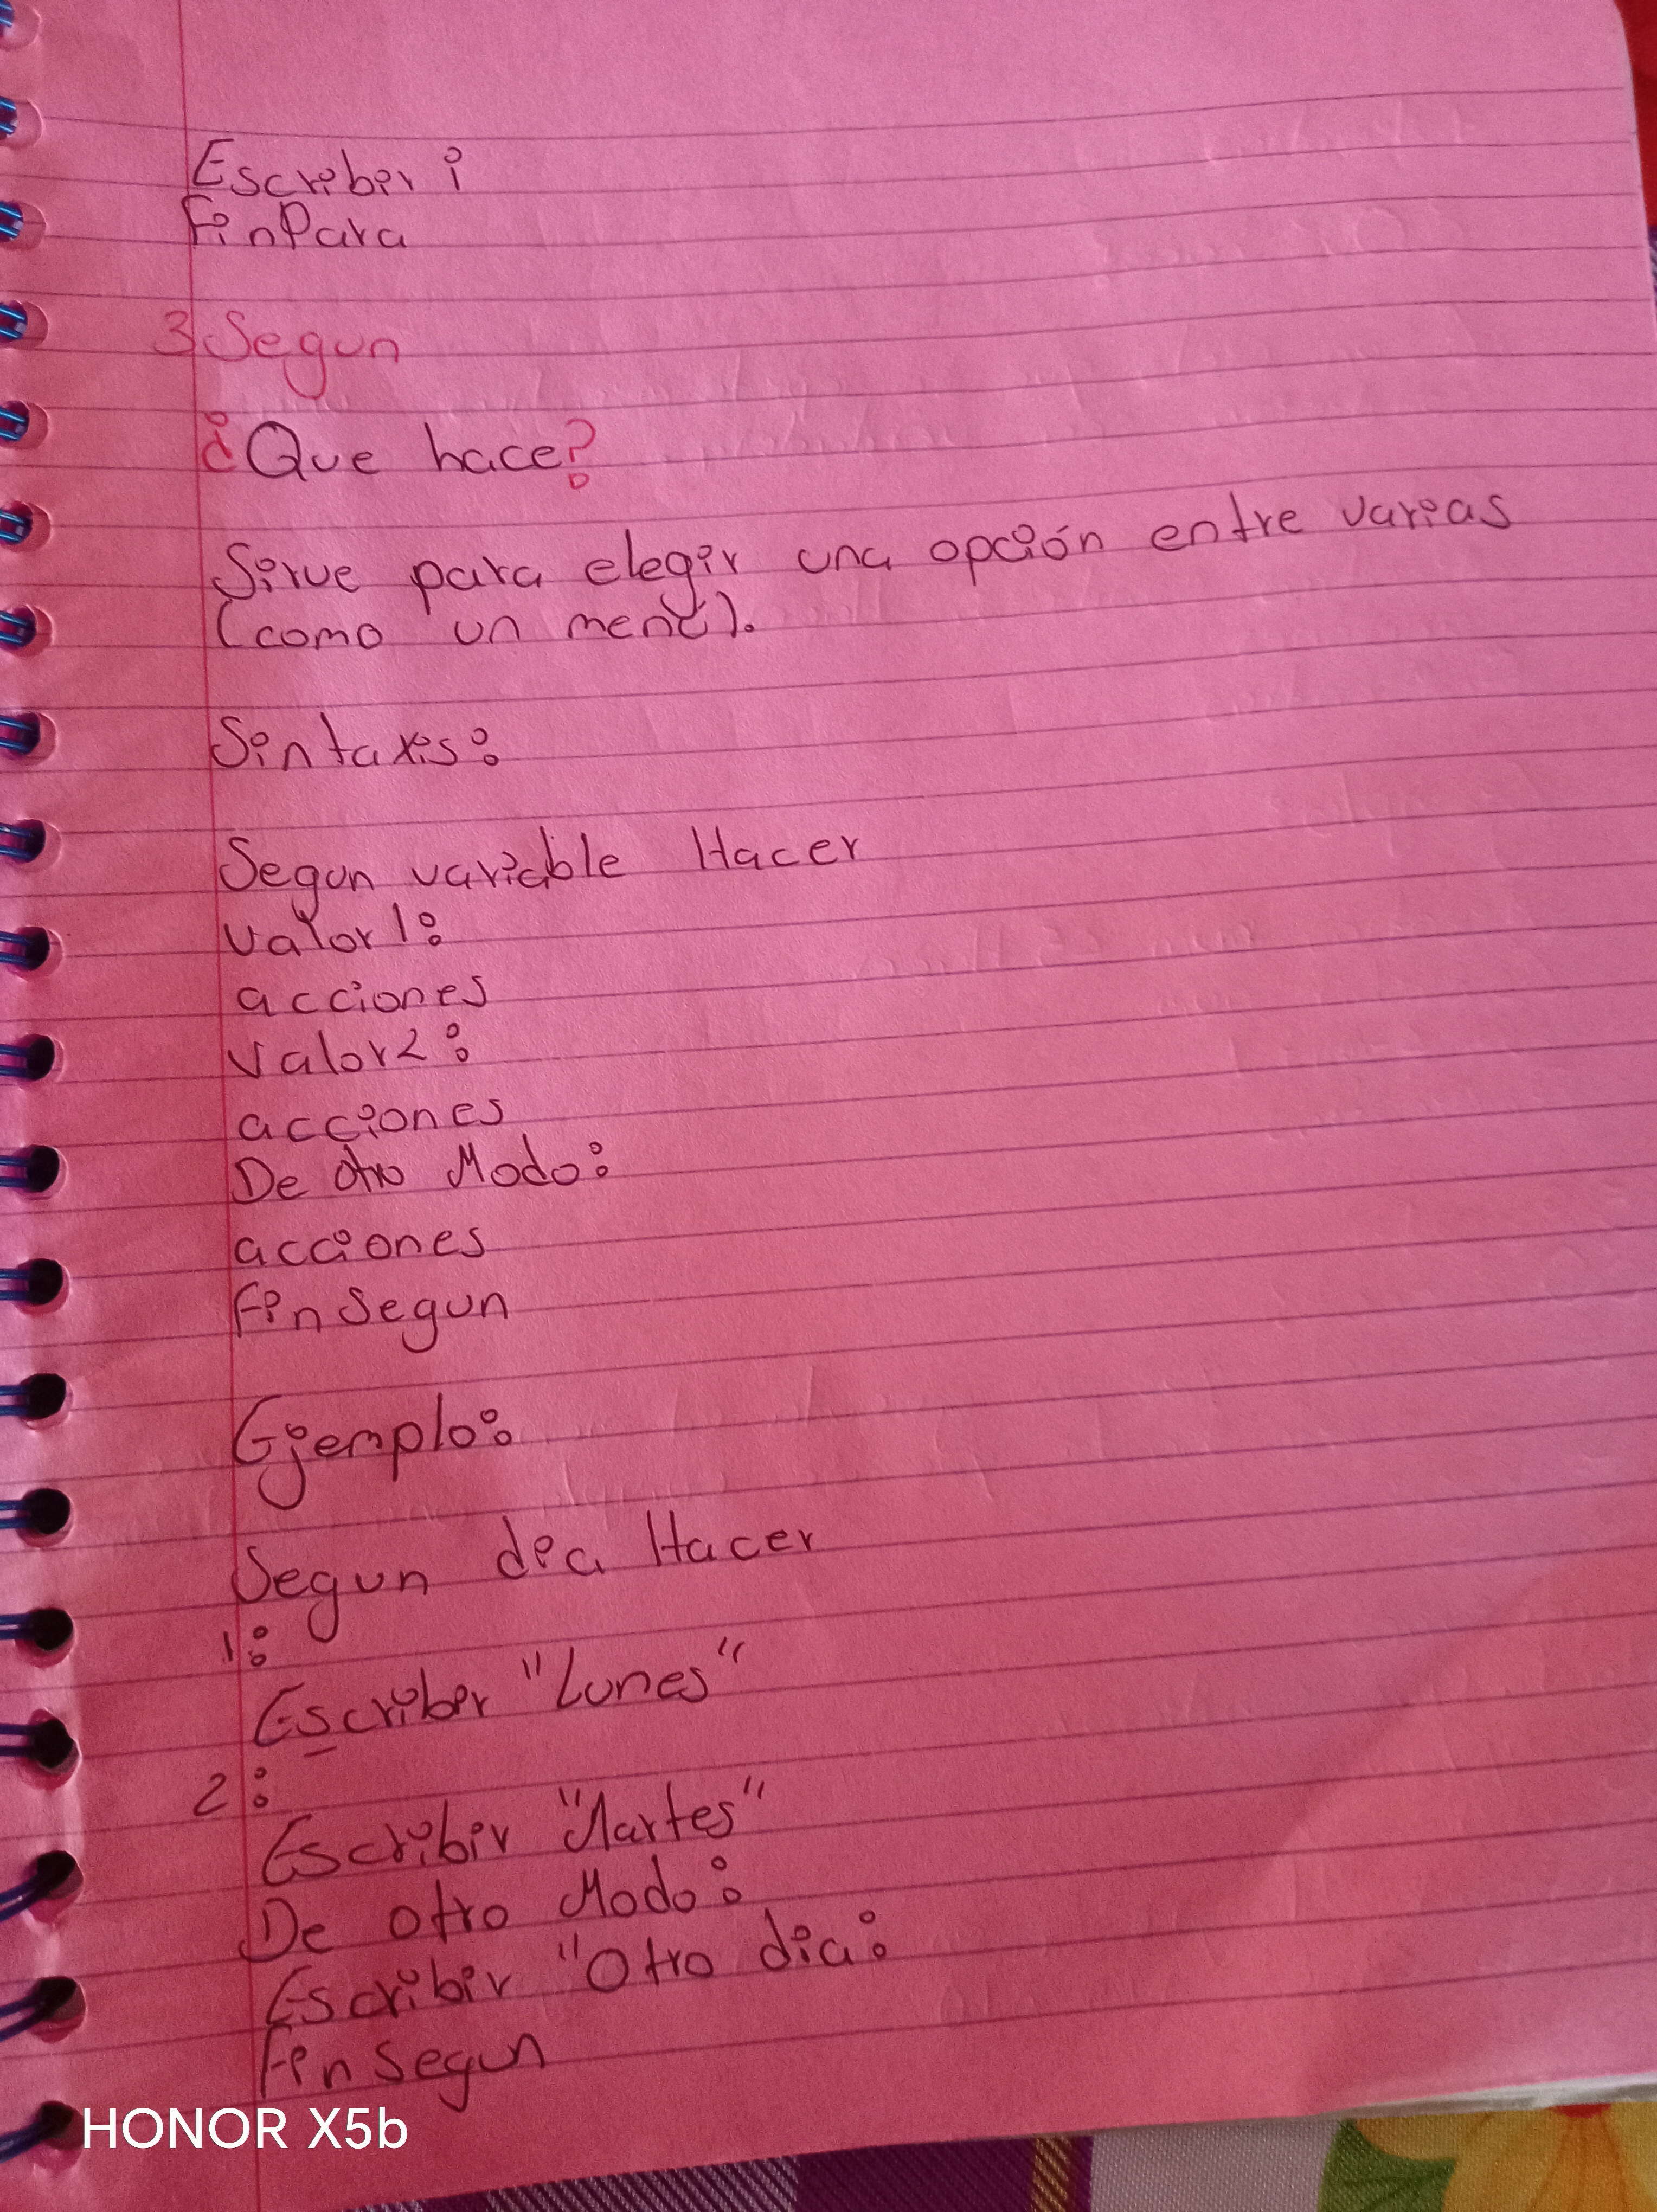 Escribir i
FinPara
3 Segun
¿Que hace?
Sirve para elegir una opción entre varias
(como un menú).
Sintaxis:
Segun variable Hacer
valor1:
acciones
valor2:
acciones
De otro Modo:
acciones
Fin Segun
Ejemplo:
Segun dia Hacer
1:
Escribir "Lunes"
2:
Escribir "Martes"
De otro Modo:
Escribir "Otro dia:
Fin Segun
HONOR X5b